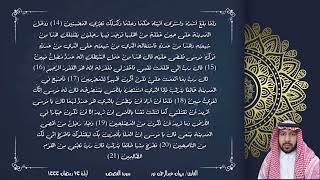 ولما بلغ أشده واستوى آتيناه حكما وعلما وكذلك نجزي المحسنين (14) ودخل
المدينة على حين غفلة من أهلها فوجد فيها رجلين يقتتلان هذا من
شيعته وهذا من عدوه فاستغاثه الذي من شيعته على الذي من عدوه
فوكزه موسى فقضى عليه قال هذا من عمل الشيطان إنه عدو مضل مبين (15)
قال رب إني ظلمت نفسي فاغفر لي فغفر له إنه هو الغفور الرحيم (16)
قال رب بما أنعمت علي فلن أكون ظهيرا للمجرمين (17) فأصبح في
المدينة خائفا يترقب فإذا الذي استنصره بالأمس يستصرخه قال له موسى إنك
لغوي مبين (18) فلما أن أراد أن يبطش بالذي هو عدو لهما قال يا موسى
أتريد أن تقتلني كما قتلت نفسا بالأمس إن تريد إلا أن تكون جبارا في
الأرض وما تريد أن تكون من المصلحين (19) وجاء رجل من أقصى
المدينة يسعى قال يا موسى إن الملأ يأتمرون بك ليقتلوك فاخرج إني لك
من الناصحين (20) فخرج منها خائفا يترقب قال رب نجني من القوم
الظالمين (21)
سورة القصص
ليلة ٢٤ رمضان